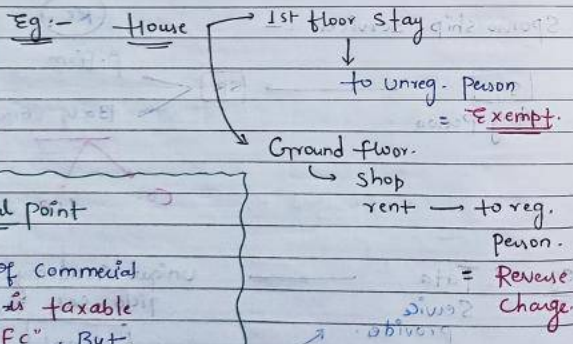 Eg:- House
1st floor stay
to unreg. person
= Exempt.
Ground floor.
shop
rent → to reg.
person.
= Reverse
Charge.
Point
of Commecial
is taxable
But